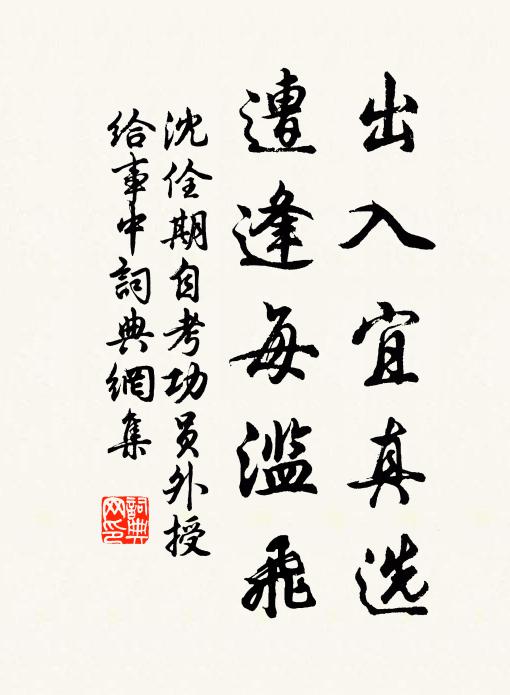 出入宜真选
遭逢每滥飞
沈佺期自考功员外授
给事中詞典網集
詞典网印